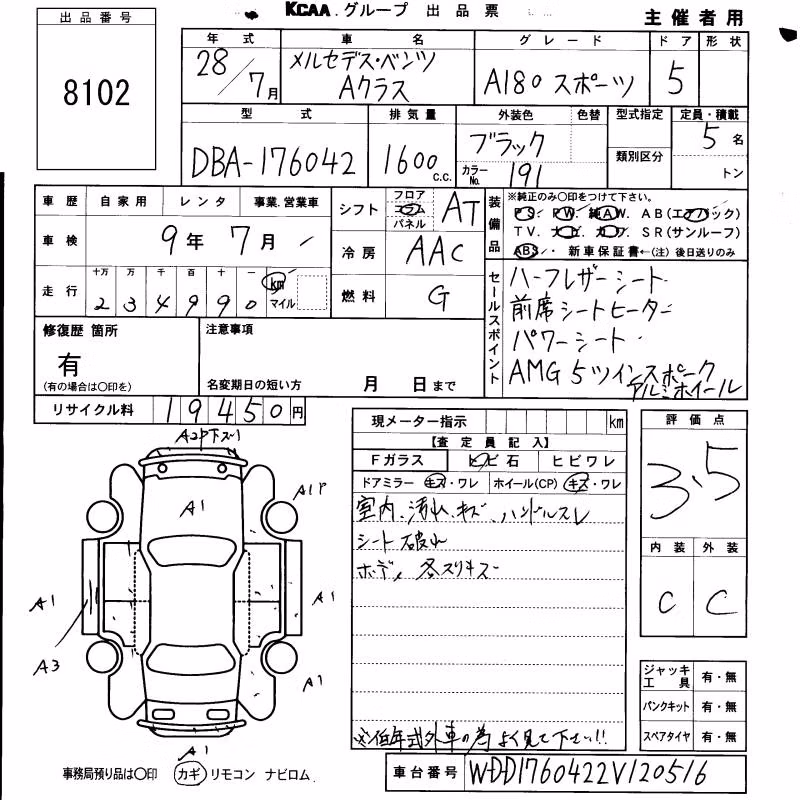 KCAA グループ 出品票
主催者用
出品番号
8102
年式 車名 グレード ドア 形状
28/7月 メルセデス・ベンツ Aクラス A180 スポーツ 5
型式 排気量 外装色 色替 型式指定 定員・積載
DBA-176042 1600 c.c. ブラック 5名
カラーNo. 191 類別区分 トン
車歴 自家用 レンタ 事業.営業車
車検 9年 7月
走行 十万 万 千 百 十 一
234990 km マイル
シフト フロア コラム パネル AT
冷房 AAC
燃料 G
装備品 ※純正のみ○印をつけて下さい。
PS. PW. 純AW. AB(エアバック)
TV. ナビ. カワ. SR(サンルーフ)
ABS. 新車保証書←(注)後日送りのみ
セールスポイント
ハーフレザーシート
前席シートヒーター
パワーシート
AMG 5ツインスポーク
アルミホイール
修復歴 箇所
有
(有の場合は○印を)
注意事項
名変期日の短い方 月 日まで
リサイクル料 19450円
現メーター指示 km
【査定員記入】
Fガラス トビ石 ヒビワレ
ドアミラー キズ・ワレ ホイール(CP) キズ・ワレ
室内、汚れ、キズ、ハンドルスレ
シート破れ
ボディ 各スリキズ
※低年式外車の為 よく見て下さい!!
評価点
3.5
内装 外装
C C
ジャッキ工具 有・無
パンクキット 有・無
スペアタイヤ 有・無
A2P下ズリ
A1
A1P
A1
A1
A3
A1
A1
事務局預り品は○印 カギ リモコン ナビロム.
車台番号 WDD1760422V120516